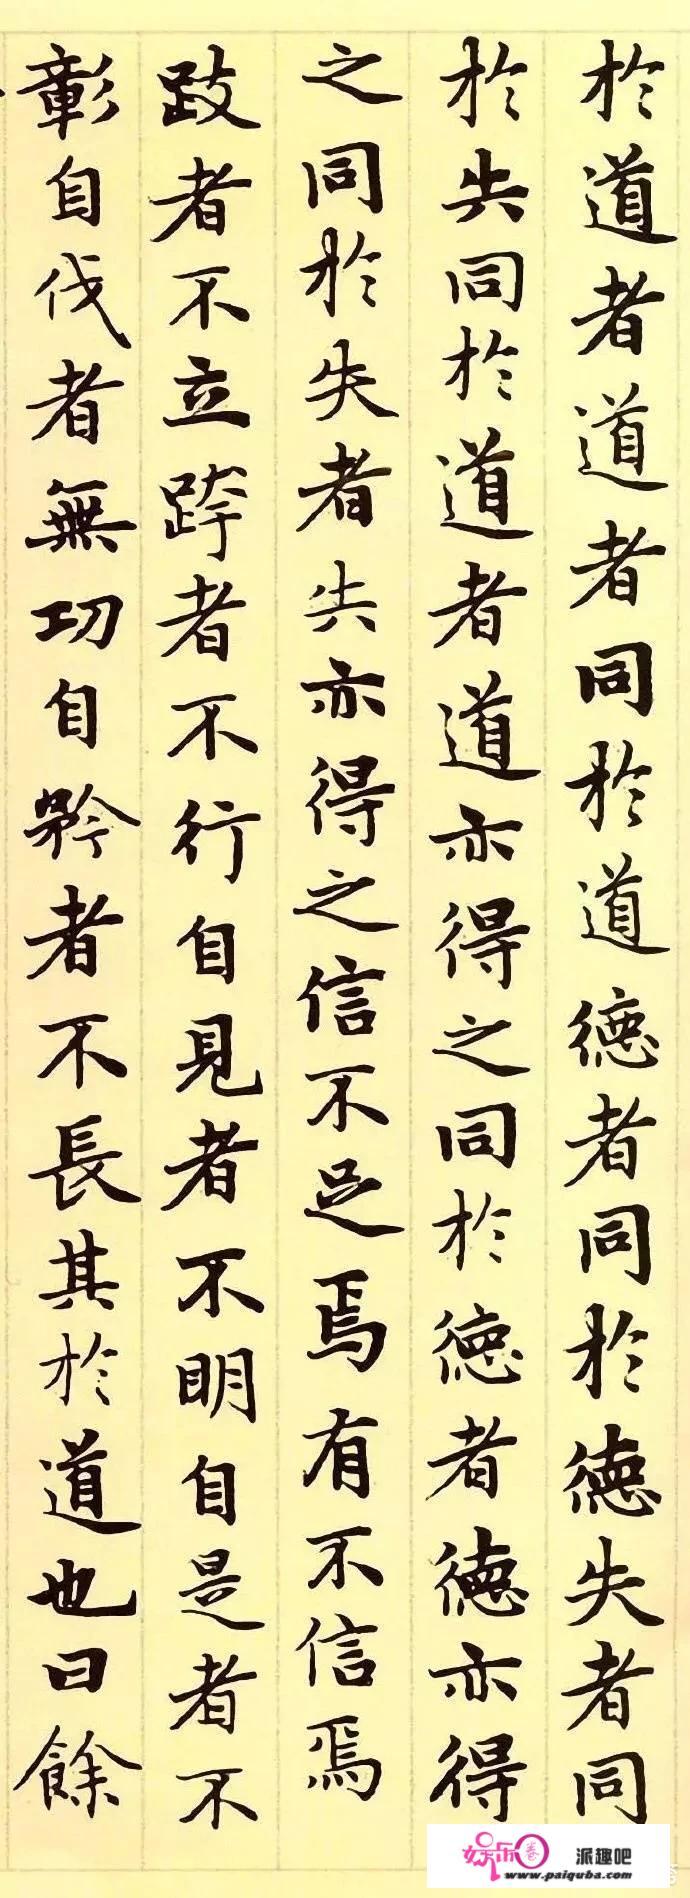 於道者道者同於道德者同於德失者同
於失同於道者道亦得之同於德者德亦得
之同於失者失亦得之信不足焉有不信焉
跂者不立跨者不行自見者不明自是者不
彰自伐者無功自矜者不長其於道也曰餘
娱乐圈
派趣吧
www.paiquba.com